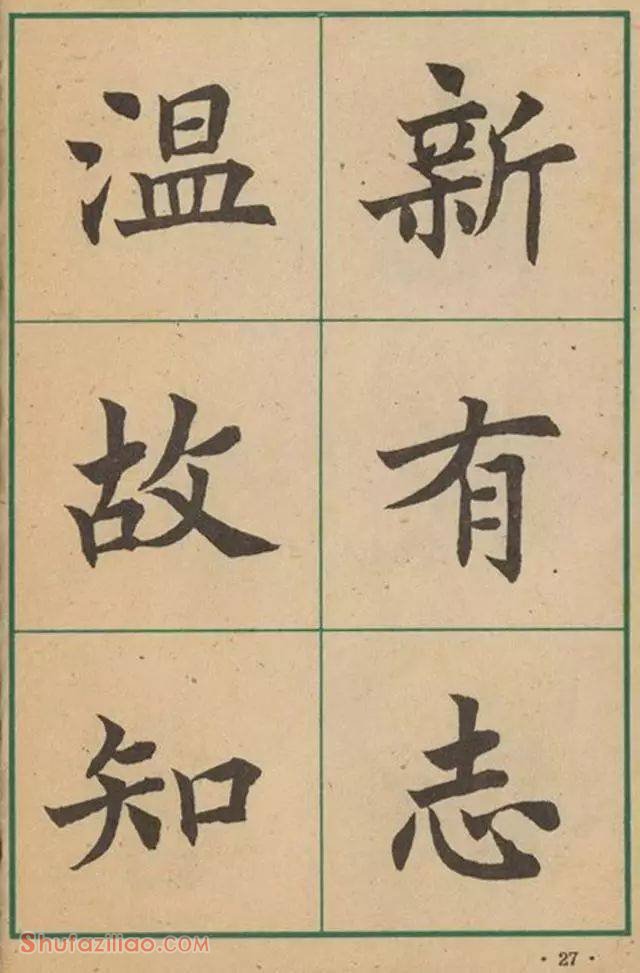 温故知
新有志
Shufaziliao.com
· 27 ·